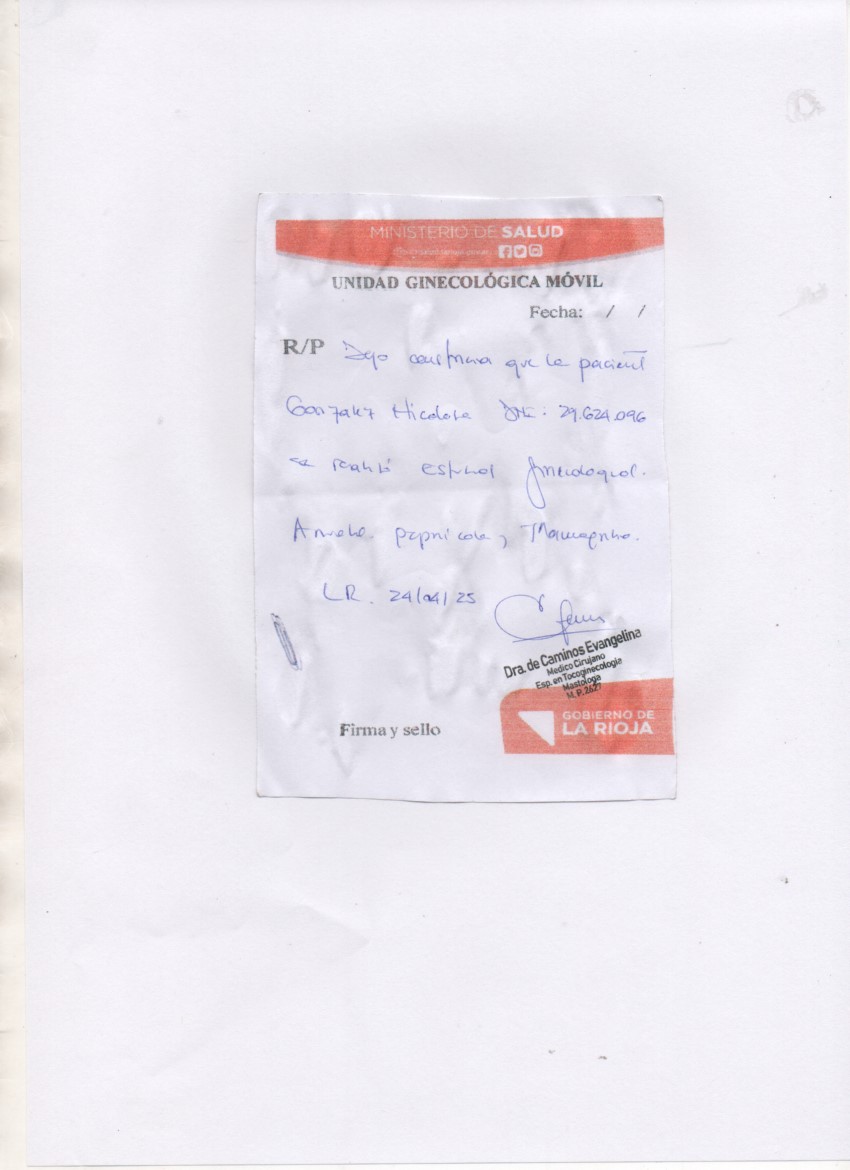 MINISTERIO DE SALUD
UNIDAD GINECOLÓGICA MÓVIL
Fecha: / /
R/P Dejo constancia que la paciente
Gonzalez Nicolasa DNI: 29.624.096
se realizó control ginecologico.
papnicolau, Mamografia.
LR. 24/04/25
Dra. de Caminos Evangelina
Medico Cirujano
Esp. en Tocoginecologia
Mastologa
M. P. 2627
Firma y sello
GOBIERNO DE
LA RIOJA